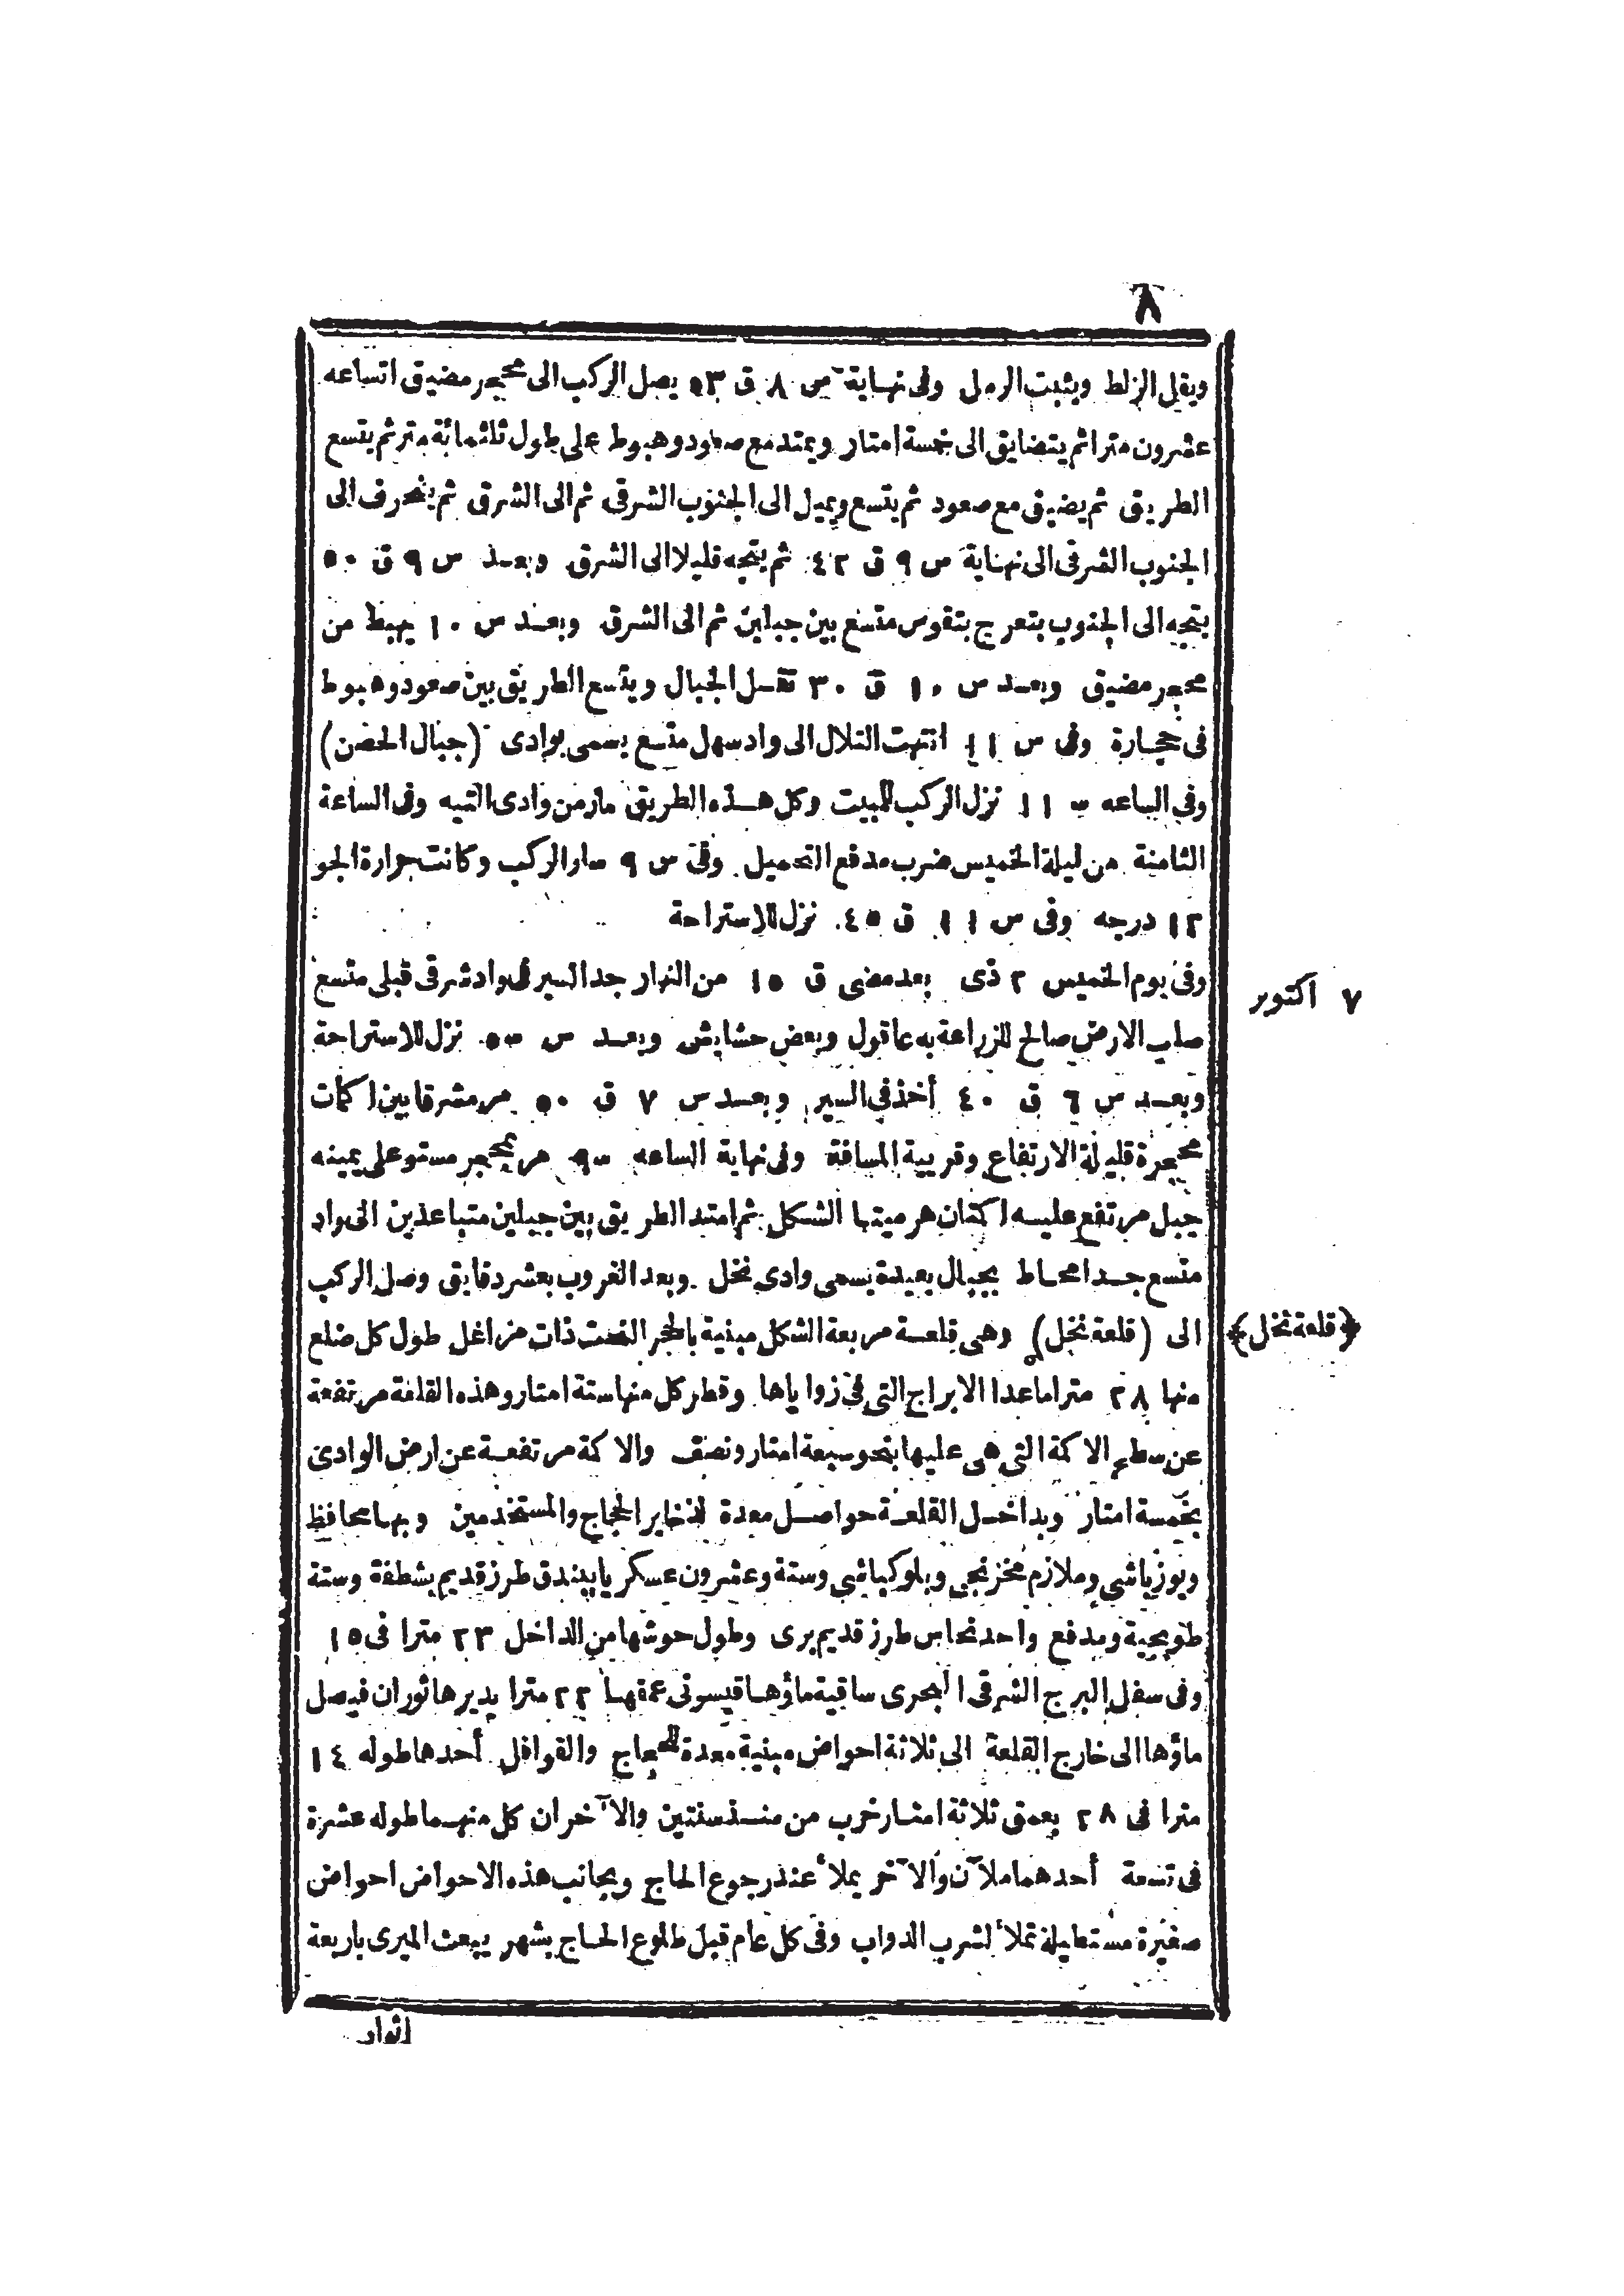 ٨
ويقل الزلط ويثبت الرمل وفى نهاية س ٨ ق ٥٣ يصل الركب الى محجر مضيق اتساعه
عشرون مترا ثم يتضايق الى خمسة امتار ويمتد مع صعود وهبوط على طول ثلثمائة متر ثم يتسع
الطريق ثم يضيق مع صعود ثم يتسع ويميل الى الجنوب الشرقى ثم الى الشرق ثم ينحرف الى
الجنوب الشرقى الى نهاية س ٩ ق ٤٢ ثم يتجه قليلا الى الشرق وبعد س ٩ ق ٥٠
يتجه الى الجنوب بتعرج بتقوس متسع بين جبلين ثم الى الشرق وبعد س ١٠ يهبط من
محجر مضيق وبعد س ١٠ ق ٣٠ تقل الجبال ويتسع الطريق بين صعود وهبوط
فى حجارة وفى س ١١ انتهت التلال الى واد سهل متسع يسمى بوادى (جبال الحصن)
وفى الساعه ١١ نزل الركب للمبيت وكل هذه الطريق مار من وادى التيه وفى الساعة
الثامنة من ليلة الخميس ضرب مدفع التحميل وفى س ٩ سار الركب وكانت حرارة الجو
١٢ درجه وفى س ١١ ق ٤٥ نزل للاستراحة
وفى يوم الخميس ٢ ذى بعد مضى ق ١٥ من النهار جد السير فى واد شرقى قبلى متسع
٧ اكتوبر
صلب الارض صالح للزراعة به عاقول وبعض حشايش وبعد س ٥ نزل للاستراحة
وبعد س ٦ ق ٤٠ أخذ فى السير وبعد س ٧ ق ٥٠ مر مشرقا بين اكمات
محجرة قليلة الارتفاع وقريبة المسافة وفى نهاية الساعه ٩ مر بمحجر مستو على يمينه
جبل مرتفع عليه اكمتان هرميتا الشكل ثم امتد الطريق بين جبلين متباعدين الى واد
متسع جدا محاط بجبال بعيدة يسمى وادى نخل وبعد الغروب بعشر دقايق وصل الركب
الى (قلعة نخل) وهى قلعة مربعة الشكل مبنية بالحجر النحت ذات مزاغل طول كل ضلع
﴿قلعة نخل﴾
منها ٢٨ مترا ماعدا الابراج التى فى زواياها وقطر كل منها ستة امتار وهذه القلعة مرتفعة
عن سطح الاكمة التى هى عليها بنحو سبعة امتار ونصف والاكمة مرتفعة عن ارض الوادى
بخمسة امتار وبداخل القلعة حواصل معدة لذخاير الحجاج والمستخدمين وبها محافظ
ويوزباشى وملازم مخزنجى وبلوكباشى وستة وعشرون عسكريا ببندق طرز قديم بشطفة وستة
طوبجية ومدفع واحد نحاس طرز قديم برى وطول حوشها من الداخل ٢٣ مترا فى ١٥
وفى سفل البرج الشرقى البحرى ساقية ماؤها قيسونى عمقها ٢٢ مترا يديرها ثوران فيصل
ماؤها الى خارج القلعة الى ثلاثة احواض مبنية معدة للحجاج والقوافل أحدها طوله ١٤
مترا فى ٢٨ بعمق ثلاثة امتار خرب من منذ سنتين والآخران كل منهما طوله عشرة
فى تسعة أحدهما ملآن والآخر يملأ عند رجوع الحاج وبجانب هذه الاحواض احواض
صغيرة مستطيلة تملأ لشرب الدواب وفى كل عام قبل طلوع الحاج بشهر يبعث الميرى باربعة
اثوار